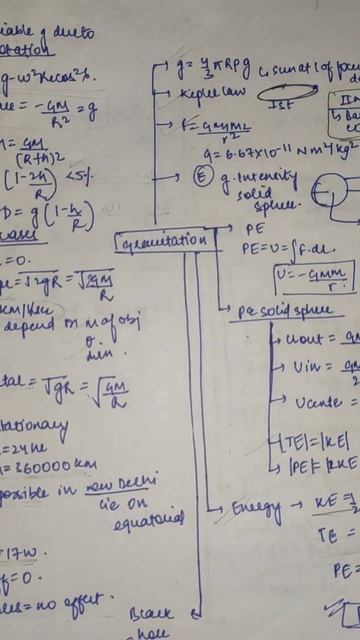 iable g due to
otation
g-ω²Recos²λ.
= -GM/R² = g
= GM/(R+h)²
(1-2h/R) <5%
D = g(1-h/R)
cases
= 0.
= √2gR = √2GM/R
km/sec
depend on m of obj
dirn.
= √gR = √GM/R
stationary
= 24hr
= 360000 km
possible in new Delhi
lie on
equatorial
= 17ω.
= 0.
= no effect.
g = 4/3 πRρg
Kepler law
Ist
sun at 1 of
F = GMM2/r²
G = 6.67×10⁻¹¹ Nm²/kg²
E g. Intensity
solid
sphere.
Gravitation
PE
PE = U = ∫F.dr.
U = -GMm/r.
PE solid sphere
Uout =
Vin =
Vcente =
|TE| = |KE|
|PE| = |2KE|
Energy → KE = 1/2
TE =
PE =
Black
hole